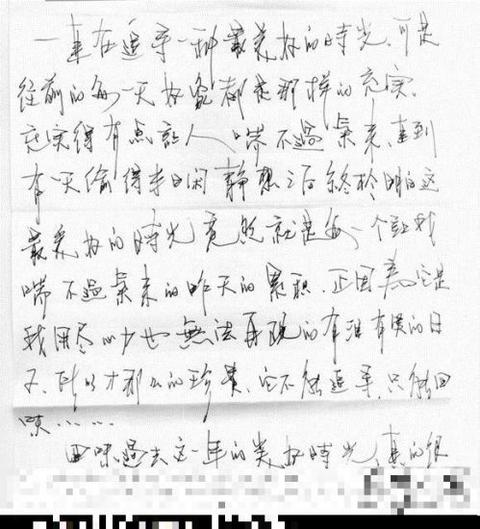 一直在追寻一种最美好的時光,可是
從前的每一天好像都是那样的充实,
充实得有点讓人喘不過氣来,直到
有一天偷得半日闲静想之后終於明白这
最美好的時光竟然就是每一个讓我
喘不過氣来的昨天的累积.正因為它是
我用尽心力也無法再現的有淚有笑的日
子,所以才那么的珍貴、它不能追寻,只能回
味......
回味過去这一年的美好時光,真的很